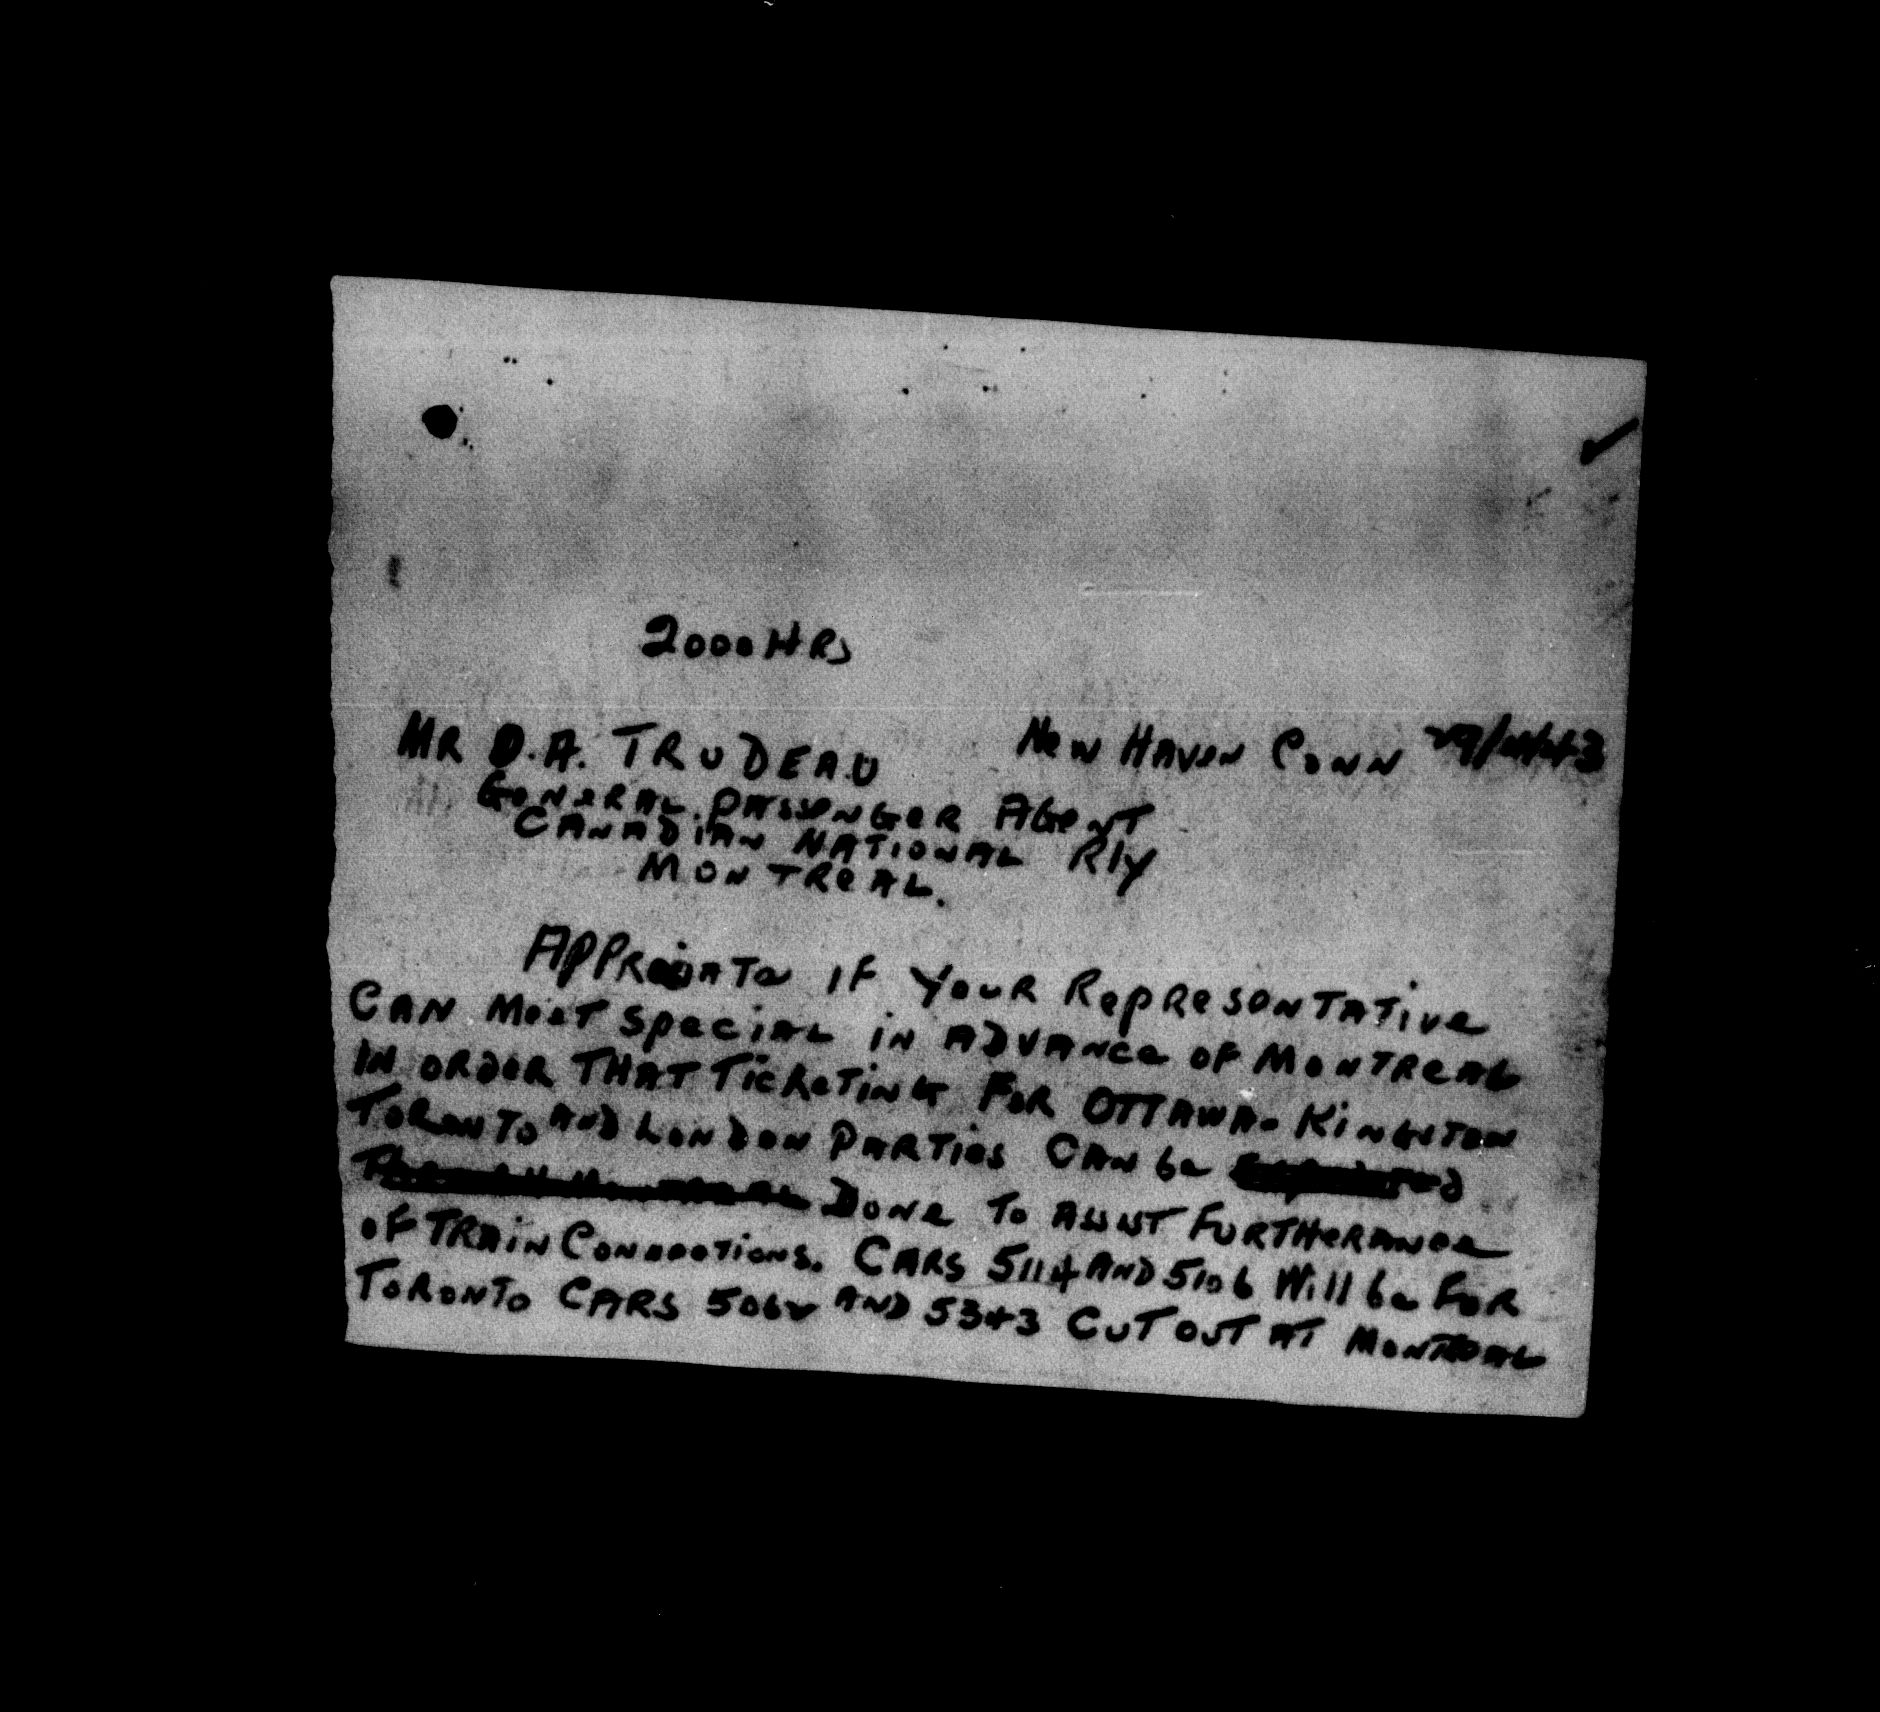 2000 HRS
MR D.A. TRUDEAU New Haven Conn
General Passenger Agent
Canadian National Rly
Montreal.
Appreciate if your Representative
can meet special in advance of Montreal
in order that ticketing for Ottawa - Kingston
Toronto and London parties can be
Done to assist furtherance
of train connections. Cars 5114 and 5106 will be for
Toronto cars 5062 and 5343 cut out at Montreal